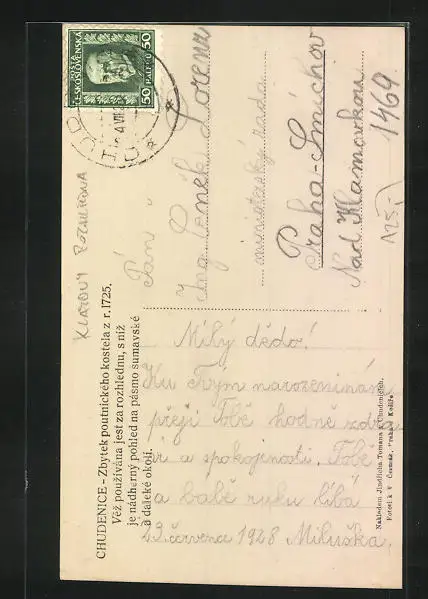 POŠTA
ČESKOSLOVENSKÁ
50 HALÉŘŮ 50
KLATOVY ROZHLEDNA
CHUDENICE – Zbytek poutnického kostela z r. 1725.
Věž používána jest za rozhlednu, s níž
je nádherný pohled na pásmo šumavské
a daleké okolí.
Pán
Ing. Čeněk Lorenz
ministerský rada
Praha-Smíchov
Nad Klamovkou
1469.
125,-
Milý dědo!
Ku Tvým narozeninám
přeji Tobě hodně zdra
ví a spokojenosti. Tobě
a babě ruku líbá
Miluška.
23. července 1928
Nákladem Jindřicha Tomana v Chudenicích.